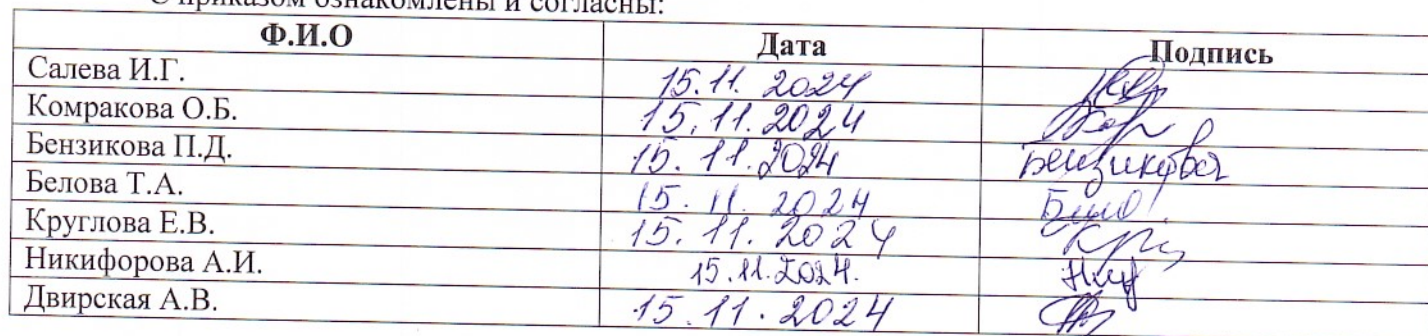 С приказом ознакомлены и согласны:
Ф.И.О Дата Подпись
Салева И.Г. 15.11.2024
Комракова О.Б. 15.11.2024
Бензикова П.Д. 15.11.2024 Бензикова
Белова Т.А. 15.11.2024
Круглова Е.В. 15.11.2024
Никифорова А.И. 15.11.2024.
Двирская А.В. 15.11.2024